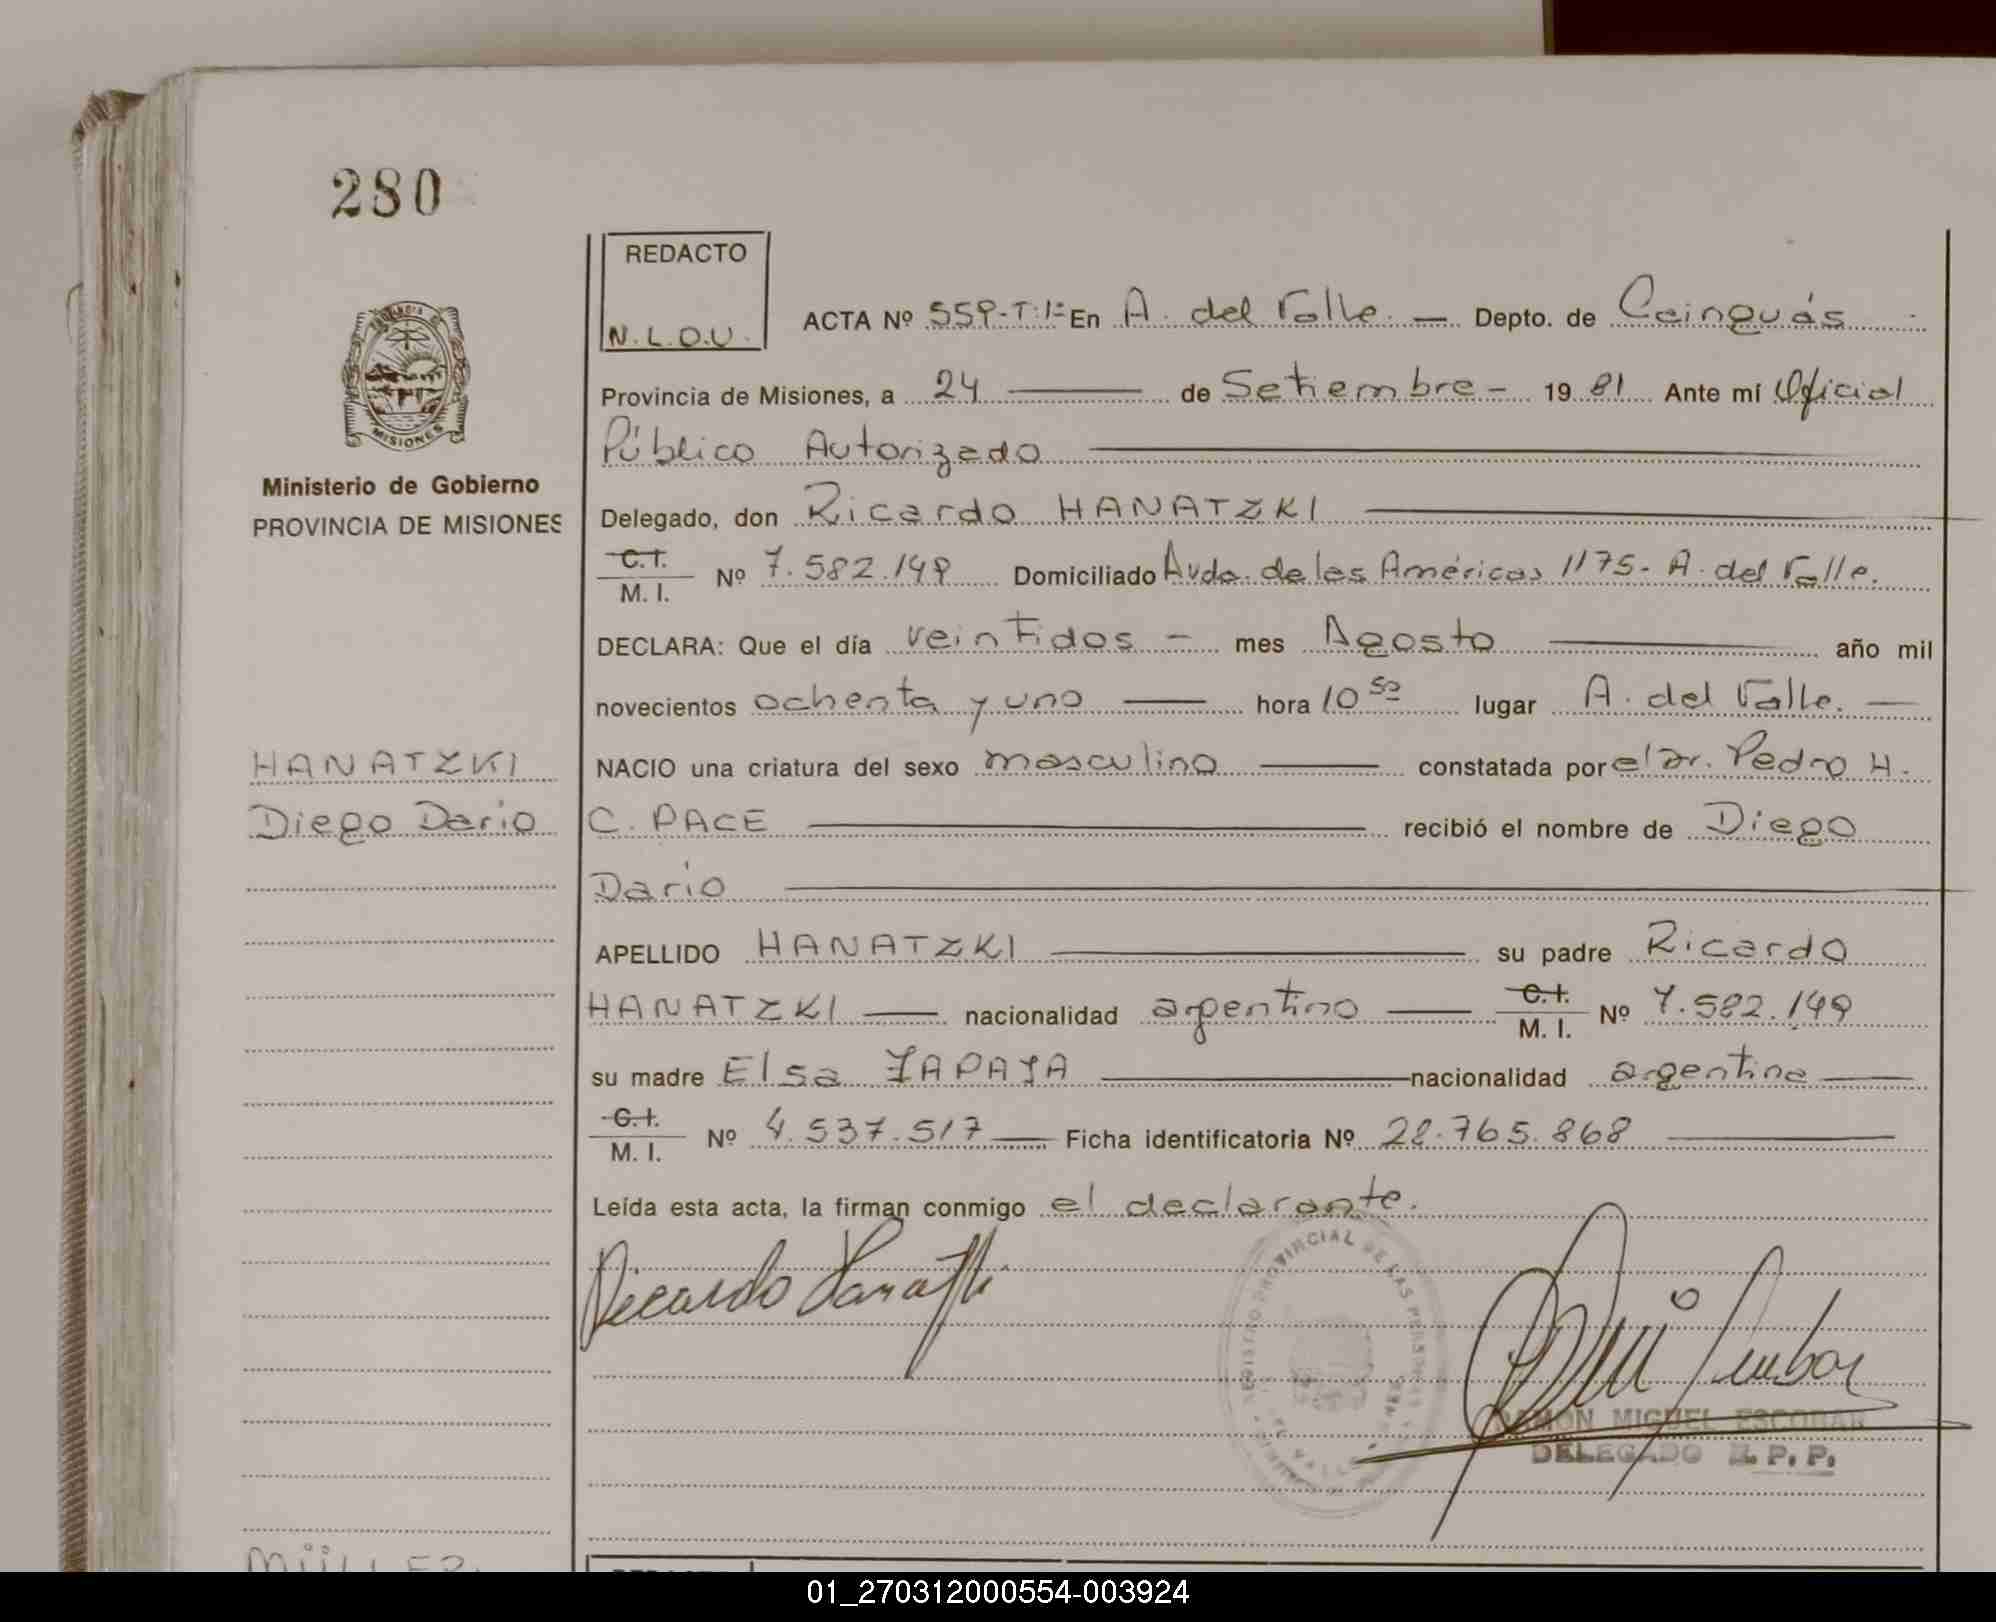 280
REDACTO
N.L.O.U.
ACTA Nº 559-T:1= En A. del Valle. — Depto. de Cainguás
Provincia de Misiones, a 24 — de Setiembre - 1981 Ante mí Oficial
Público Autorizado
MISIONES
Ministerio de Gobierno
PROVINCIA DE MISIONES
Delegado, don Ricardo HANATZKI
C.I.
M. I. Nº 7.582.149 Domiciliado Avda. de las Américas 1175- A. del Valle.
DECLARA: Que el día veintidos - mes Agosto — año mil
novecientos ochenta y uno — hora 10 50 lugar A. del Valle. —
HANATZKI
Diego Dario
NACIO una criatura del sexo masculino — constatada por el Dr. Pedro H.
C. PACE — recibió el nombre de Diego
Dario
APELLIDO HANATZKI — su padre Ricardo
HANATZKI — nacionalidad argentino — C.I. M. I. Nº 7.582.149
su madre Elsa ZAPATA — nacionalidad argentina —
C.I.
M. I. Nº 4.537.517 — Ficha identificatoria Nº 28.765.868 —
Leída esta acta, la firman conmigo el declarante.
Ricardo Hanatzki
REGISTRO PROVINCIAL DE LAS PERSONAS
RAMON MIGUEL ESCOBAR
DELEGADO R. P. P.
MÜLLER
REDACTO
01_270312000554-003924